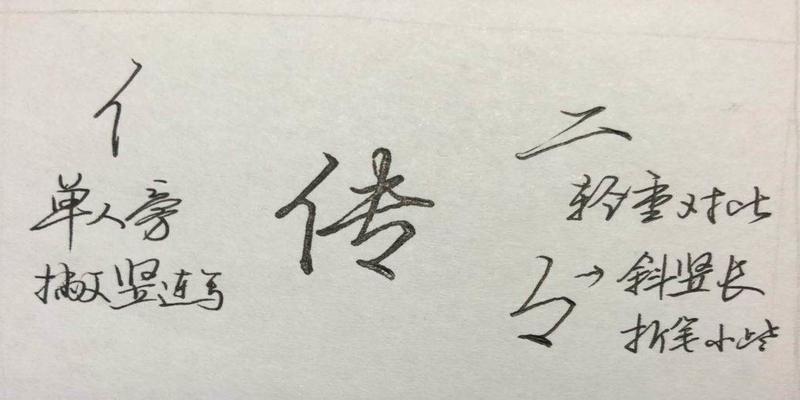 亻
单人旁
撇竖连写
传
二
轻重对比
斜竖长
折笔小些